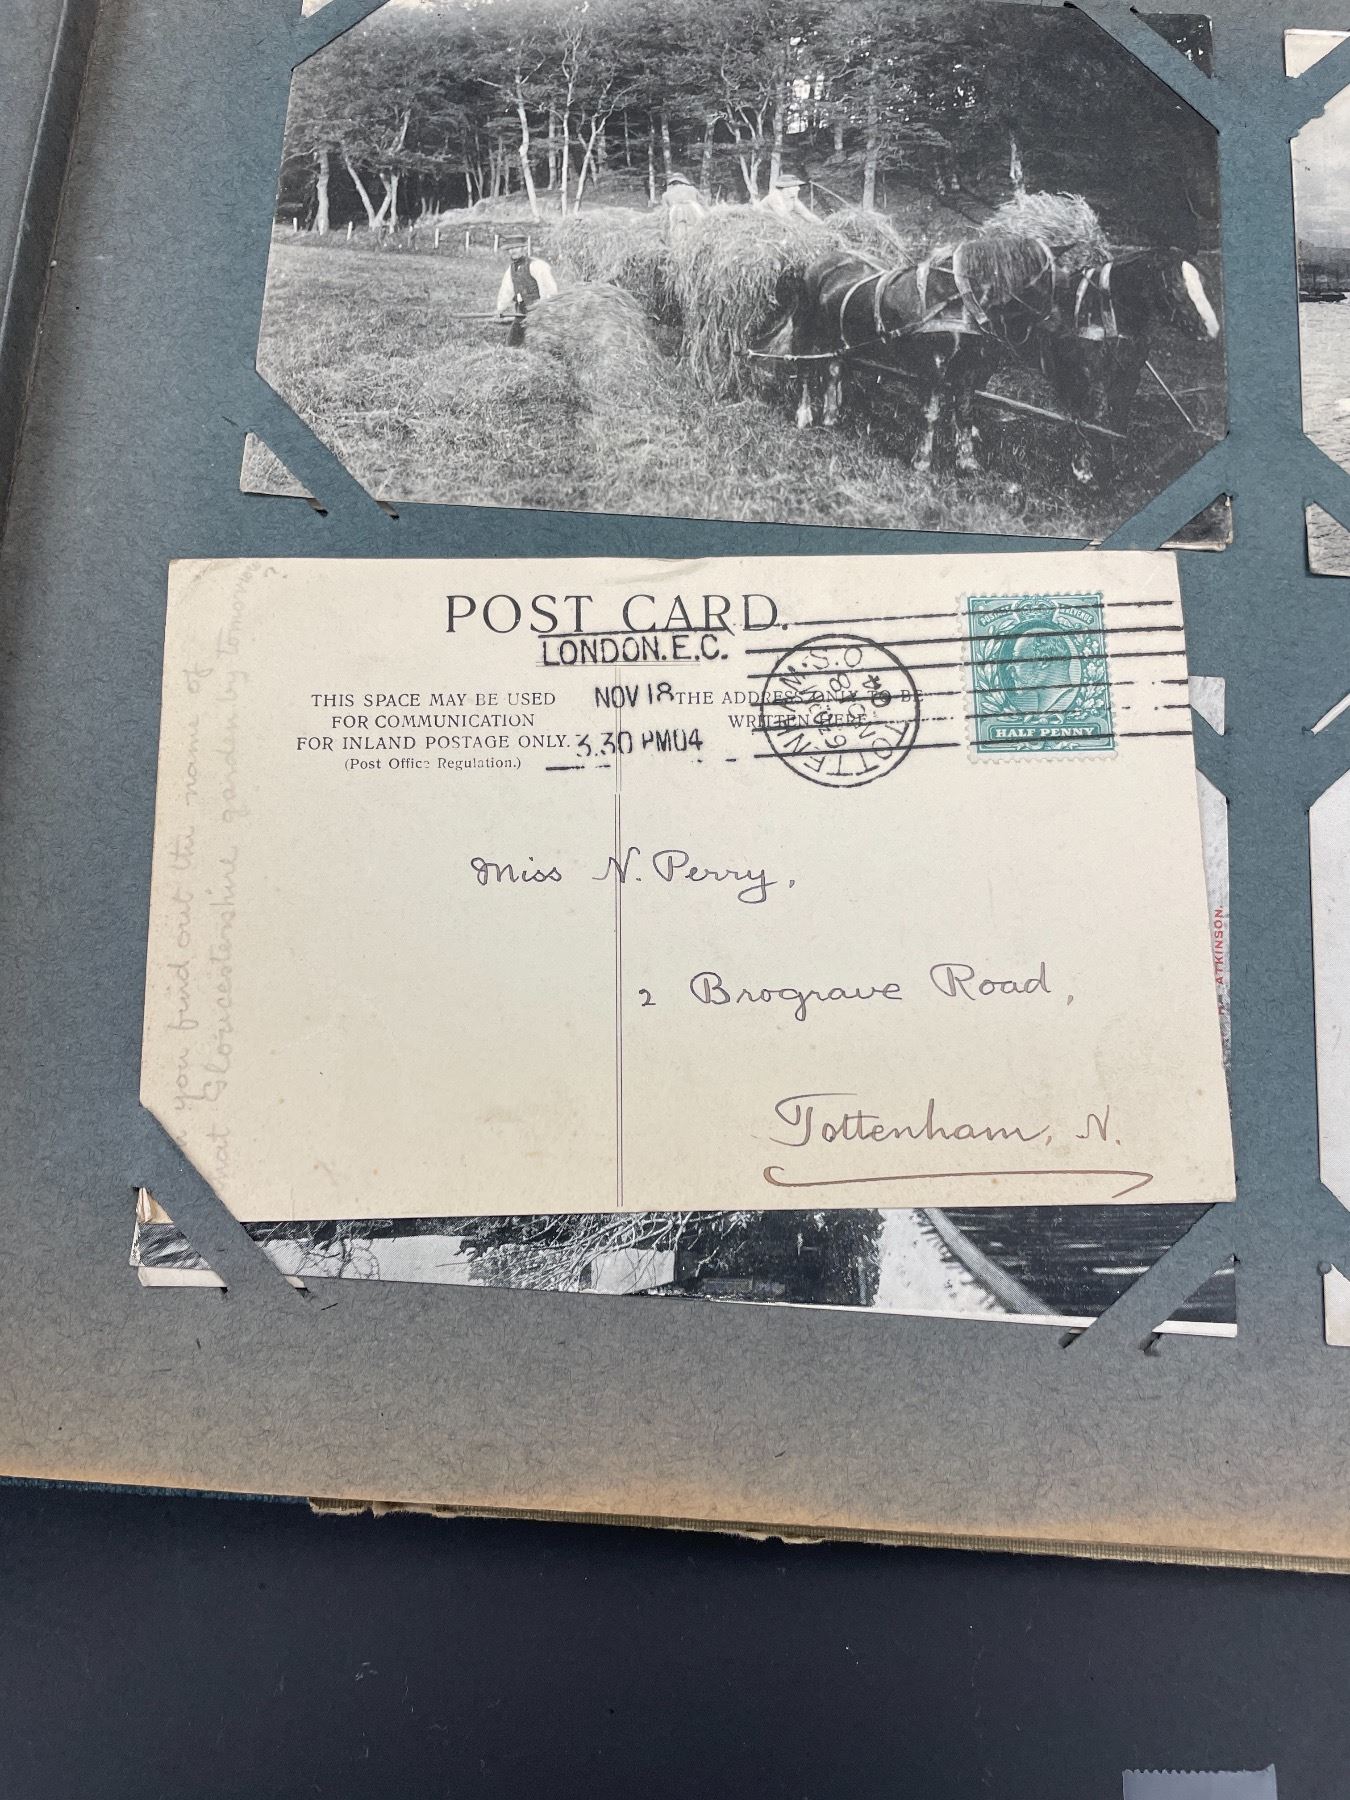 POST CARD.
LONDON.E.C.
NOV 18
3.30 PM 04
THIS SPACE MAY BE USED
FOR COMMUNICATION
FOR INLAND POSTAGE ONLY.
(Post Office Regulation.)
THE ADDRESS ONLY TO BE
WRITTEN HERE
TOTTENHAM. S.O
NO 18
04
POSTAGE & REVENUE
HALF PENNY
Miss N. Perry,
2 Brograve Road,
Tottenham, N.
you find out the name of
that Gloucestershire garden by tomorrow?
ATKINSON.